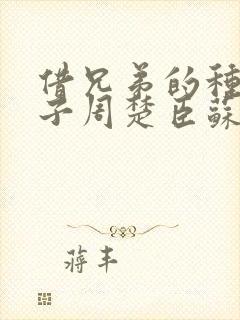 借兄弟的種
子周楚臣蘇
蔣丰